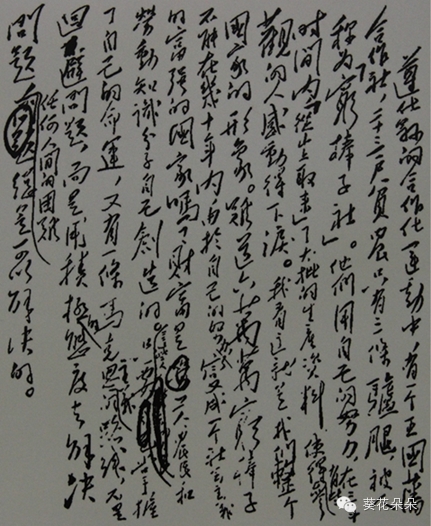 遵化县的合作化运动中,有一个王国藩
合作社,二十三户贫农只有三条驴腿,被
称为“穷棒子社”。他们用自己的努力,在三年
时间内,“从山上取来”了大批的生产资料,使得
观的人感动得下泪。我看这就是我们整个
国家的形象。难道六万万穷棒子
不能在几十年内由于自己的努力变成一个社会主义
的富强的国家吗?财富是工人、农民和
劳动知识分子自己创造的。只要掌握
了自己的命运,又有一条马克思列宁主义路线,不是
回避问题,而是用积极的态度去解决
问题,任何人间的困难总是可以解决的。
葵花朵朵